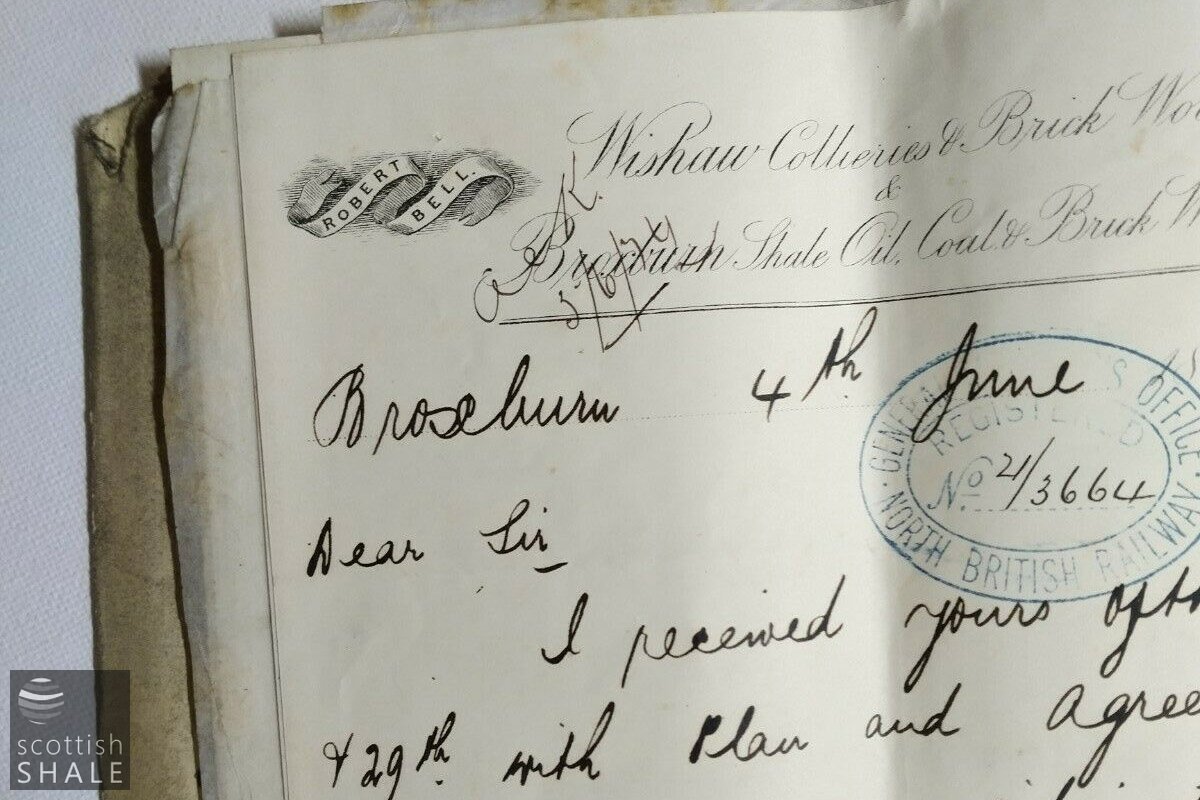 ROBERT BELL.
Wishaw Collieries & Brick Wo
&
Broxburn Shale Oil, Coal & Brick W
Broxburn 4th June 18
GENERAL OFFICE
REGISTERED
No 21/3664
NORTH BRITISH RAILWAY
Dear Sir
I received yours of
& 29th with Plan and Agree
scottish
SHALE